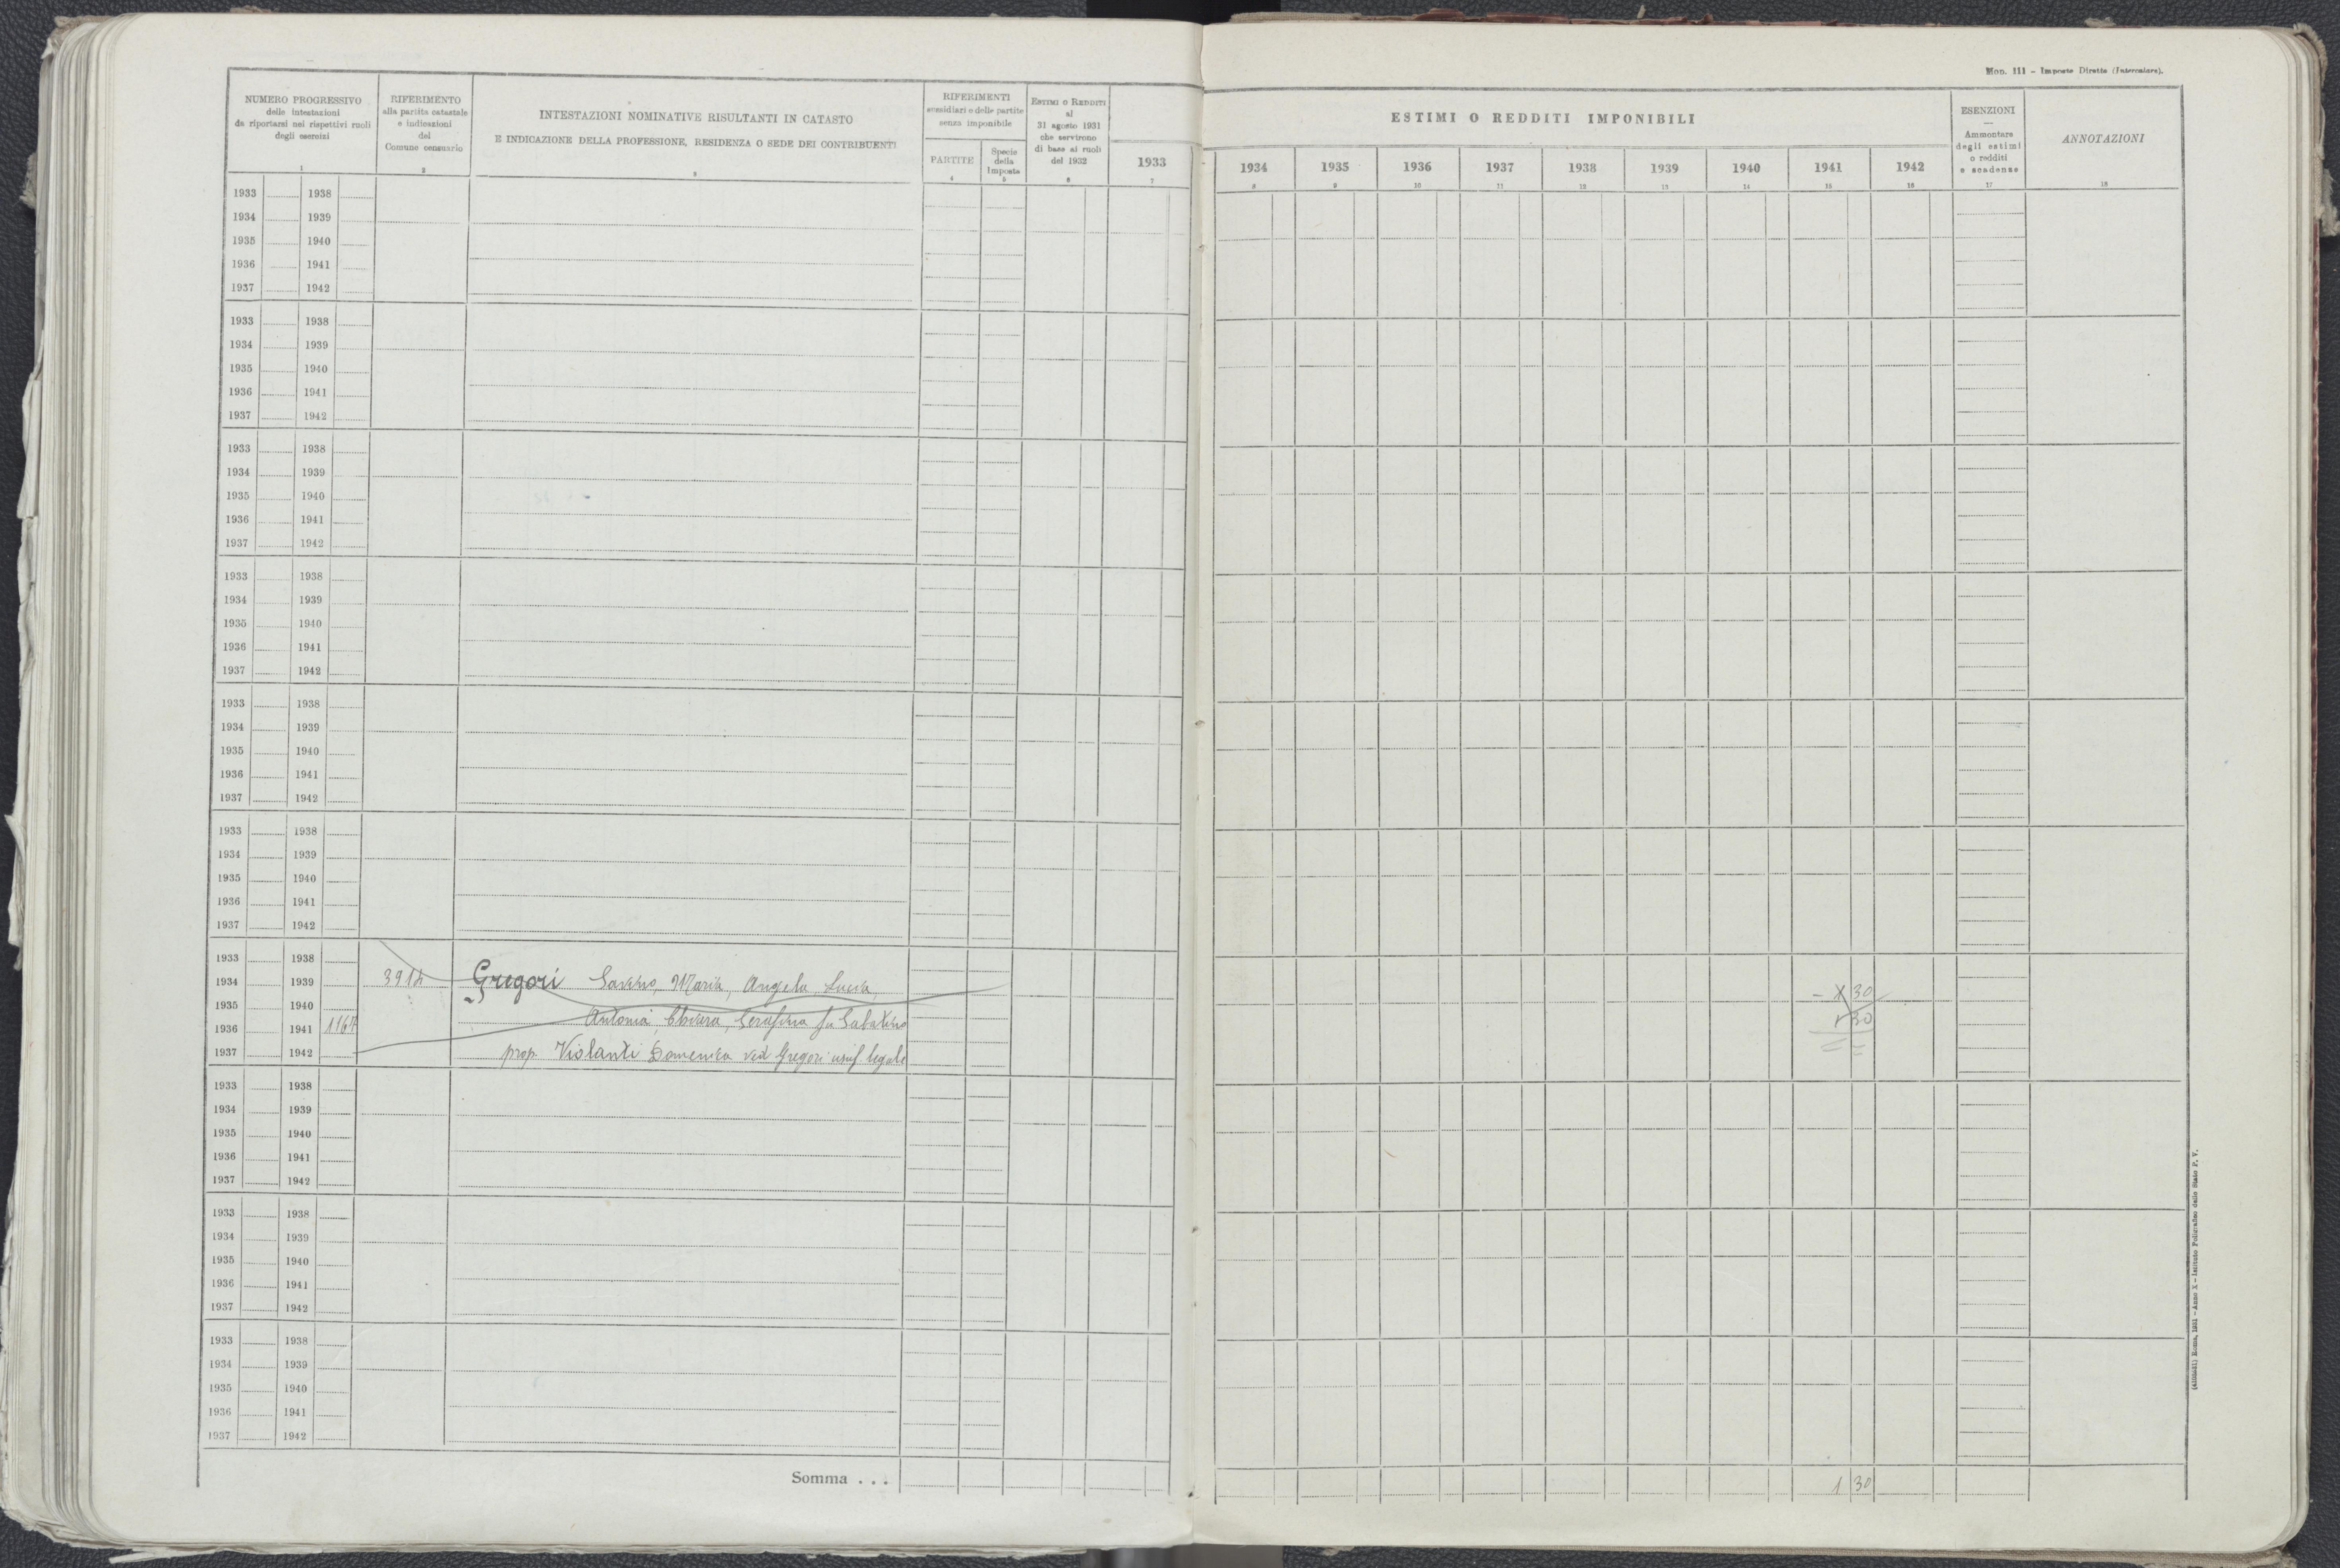 Mod. 111 - Imposte Dirette (Intercalare).
NUMERO PROGRESSIVO
delle intestazioni
da riportarsi nei rispettivi ruoli
degli esercizi
1
RIFERIMENTO
alla partita catastale
e indicazioni
del
Comune censuario
2
INTESTAZIONI NOMINATIVE RISULTANTI IN CATASTO
E INDICAZIONE DELLA PROFESSIONE, RESIDENZA O SEDE DEI CONTRIBUENTI
3
RIFERIMENTI
sussidiari e delle partite
senza imponibile
PARTITE
4
Specie
della
Imposta
5
ESTIMI O REDDITI
al
31 agosto 1931
che servirono
di base ai ruoli
del 1932
6
1933
7
ESTIMI O REDDITI IMPONIBILI
1934 1935 1936 1937 1938 1939 1940 1941 1942
8 9 10 11 12 13 14 15 16
ESENZIONI
—
Ammontare
degli estimi
o redditi
e scadenze
17
ANNOTAZIONI
18
1933 1938
1934 1939
1935 1940
1936 1941
1937 1942
1933 1938
1934 1939
1935 1940
1936 1941
1937 1942
1933 1938
1934 1939
1935 1940
1936 1941
1937 1942
1933 1938
1934 1939
1935 1940
1936 1941
1937 1942
1933 1938
1934 1939
1935 1940
1936 1941
1937 1942
1933 1938
1934 1939
1935 1940
1936 1941
1937 1942
1933 1938
1934 1939 Gregori Maria, Angela, Lucia,
1935 1940
Antonia, Chiara, Serafina fu Sabatino
1936 1941
1937 1942 prop. Violanti Domenica ved Gregori usuf. legale
1933 1938
1934 1939
1935 1940
1936 1941
1937 1942
1933 1938
1934 1939
1935 1940
1936 1941
1937 1942
1933 1938
1934 1939
1935 1940
1936 1941
1937 1942
Somma . . . 1 30
(4103531) Roma, 1931 - Anno X - Istituto Poligrafico dello Stato P. V.